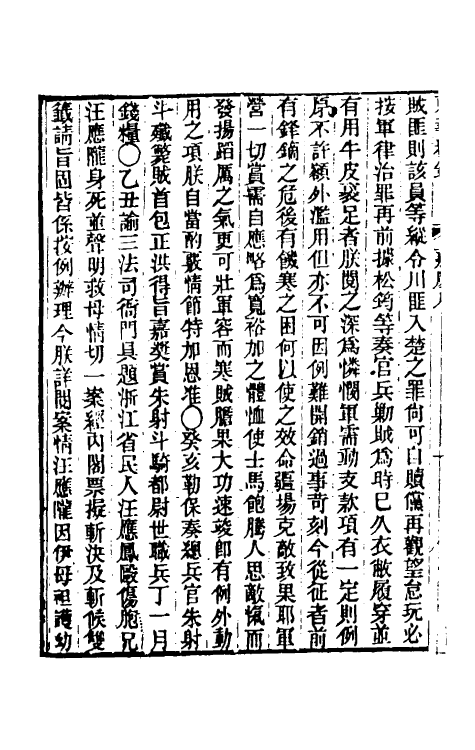 賊匪則該員等縱令川匪入楚之罪尙可自贖儻再觀望怠玩必
按軍律治罪再前據松筠等奏官兵勦賊爲時已久衣敝履穿並
有用牛皮裹足者朕閱之深爲憐憫軍需動支款項有一定則例
原不許額外濫用但亦不可因例難開銷過事苛刻今從征者前
有鋒鏑之危後有饑寒之困何以使之效命疆場克敵致果耶軍
營一切賞需自應略爲寬裕加之體恤使士馬飽騰人思敵愾而
發揚蹈厲之氣更可壯軍容而寒賊膽果大功速竣卽有例外動
用之項朕自當酌覈情節特加恩准〇癸亥勒保奏總兵官朱射
斗殲斃賊首包正洪得旨嘉奬賞朱射斗騎都尉世職兵丁一月
錢糧〇乙丑諭三法司衙門具題浙江省民人汪應鳳毆傷胞兄
汪應隴身死並聲明救母情切一案經內閣票擬斬決及斬候雙
籤請旨固皆係按例辦理今朕詳閱案情汪應隴因伊母祖護幼